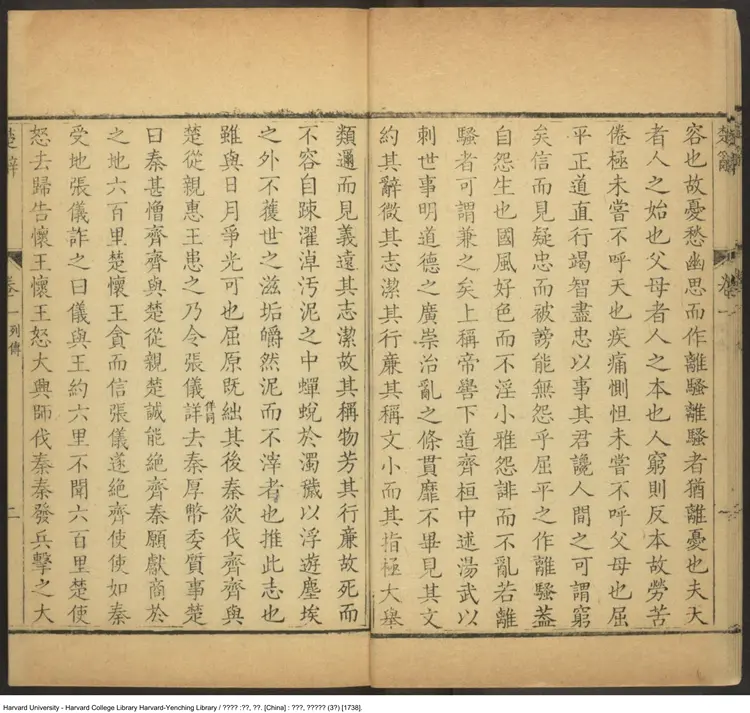 楚辭
容也故憂愁幽思而作離騷離騷者猶離憂也夫天
者人之始也父母者人之本也人窮則反本故勞苦
倦極未嘗不呼天也疾痛慘怛未嘗不呼父母也屈
平正道直行竭智盡忠以事其君讒人間之可謂窮
矣信而見疑忠而被謗能無怨乎屈平之作離騷蓋
自怨生也國風好色而不淫小雅怨誹而不亂若離
騷者可謂兼之矣上稱帝嚳下道齊桓中述湯武以
刺世事明道德之廣崇治亂之條貫靡不畢見其文
約其辭微其志潔其行廉其稱文小而其指極大舉
類邇而見義遠其志潔故其稱物芳其行廉故死而
不容自疎濯淖汚泥之中蟬蛻於濁穢以浮遊塵埃
之外不獲世之滋垢皭然泥而不滓者也推此志也
雖與日月爭光可也屈原既絀其後秦欲伐齊齊與
楚從親惠王患之乃令張儀詳佯同去秦厚幣委質事楚
曰秦甚憎齊齊與楚從親楚誠能絶齊秦願獻商於
之地六百里楚懷王貪而信張儀遂絶齊使使如秦
受地張儀詐之曰儀與王約六里不聞六百里楚使
怒去歸告懷王懷王怒大興師伐秦秦發兵擊之大
楚辭 卷一 列傳 二
Harvard University - Harvard College Library Harvard-Yenching Library / ???? :??, ??. [China] : ???, ????? (3?) [1738].